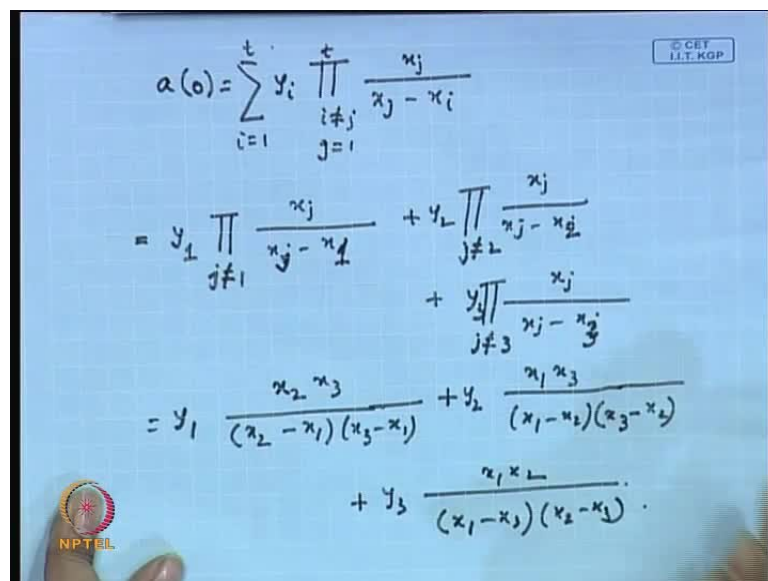 © CET
I.I.T. KGP
a(0) = \sum_{i=1}^{t} y_i \prod_{i \neq j, j=1}^{t} \frac{x_j}{x_j - x_i}
= y_1 \prod_{j \neq 1} \frac{x_j}{x_j - x_1} + y_2 \prod_{j \neq 2} \frac{x_j}{x_j - x_2}
+ y_3 \prod_{j \neq 3} \frac{x_j}{x_j - x_3}
= y_1 \frac{x_2 x_3}{(x_2 - x_1)(x_3 - x_1)} + y_2 \frac{x_1 x_3}{(x_1 - x_2)(x_3 - x_2)}
+ y_3 \frac{x_1 x_2}{(x_1 - x_3)(x_2 - x_3)} .
NPTEL